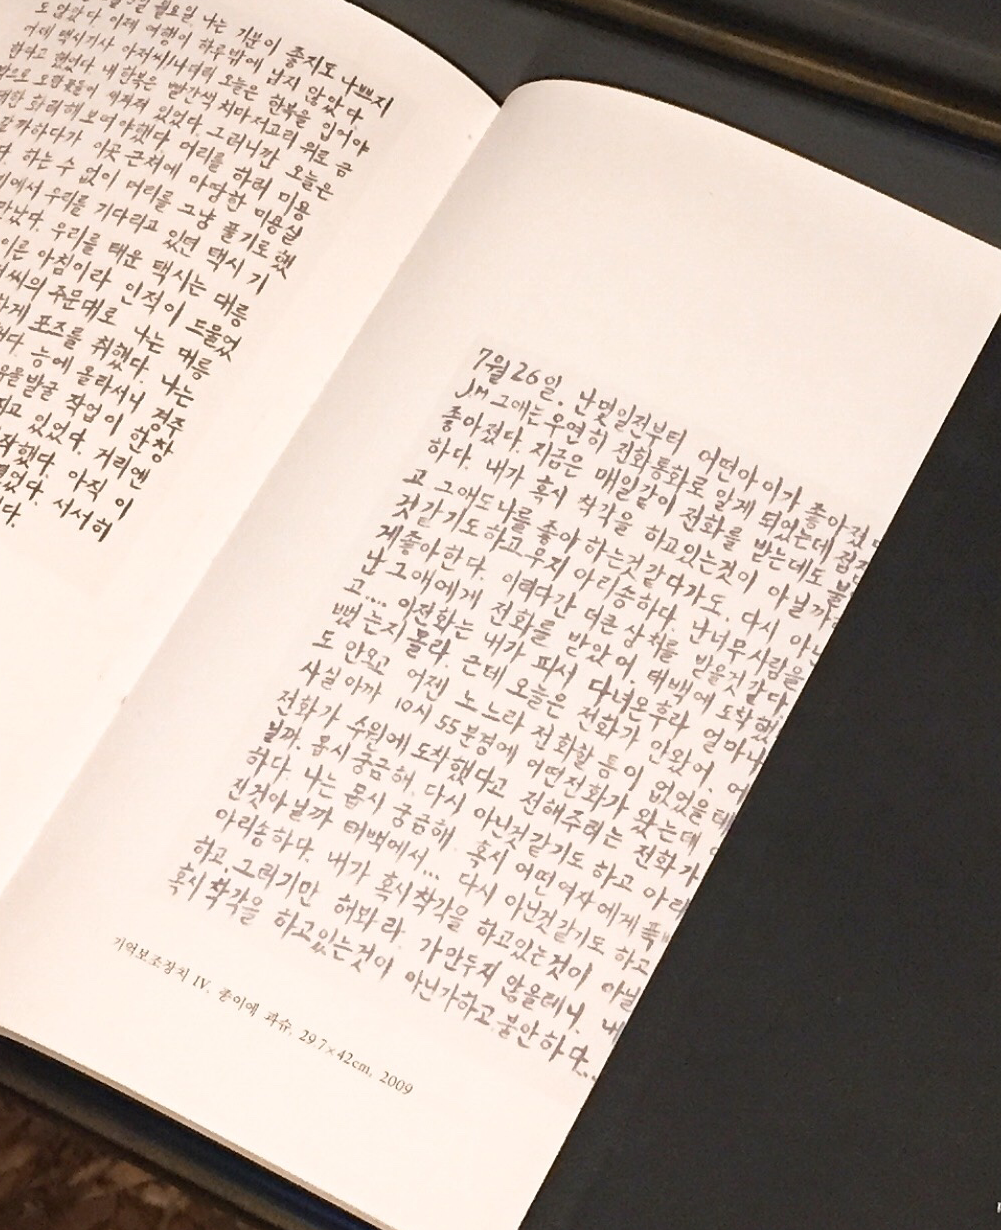 월요일. 나는 기분이 좋지도 나쁘지
도 않았다. 이제 여행이 하루밖에 남지 않았다.
어제 택시기사 아저씨나더러 오늘은 한복을 입어야
한다고 했었다. 내 한복은 빨간색 치마저고리 위로 금
오색꽃들이 있었다. 그러니깐 오늘은
화려해 보여야했다. 머리를 하러 미용
갈까하다가 이곳 근처에 마땅한 미용실
하는 수 없이 머리를 그냥 풀기로 했
에서 우리를 기다리고 있던 택시 기
만났다. 우리를 태운 택시는 대릉
이른 아침이라 인적이 드물었
씨의 주문대로 나는 대릉
하게 포즈를 취했다. 나는
능에 올라서니 경주
발굴 작업이 한창
있었다. 거리엔
했다. 아직 이
서서히
7월 26일. 난 몇일전부터 어떤아이가 좋아졌다
J.M 그애는 우연히 전화통화로 알게 되었는데 점점
좋아졌다. 지금은 매일같이 전화를 받는데도 불
하다. 내가 혹시 착각을 하고있는것이 아닐까
고 그애도 나를 좋아 하는것 같다가도. 다시 아닌
것 같기도하고 무지 아리송하다. 난너무 사람을
게 좋아한다. 이러다간 더큰 상처를 받을것 같다.
난 그애에게 전화를 받았어. 태백에 도착했
고.... 이전화는 내가 피서 다녀온후라 얼마나
뻤는지 몰라. 근데 오늘은 전화가 안왔어. 어
도 안오고 어젠 노느라 전화할 틈이 없었을테
사실 아까 10시 55분경에 어떤전화가 왔는데
전화가 수원에 도착했다고 전해주려는 전화가
닐까. 몹시 궁금해. 다시 아닌것같기도 하고 아리
하다. 나는 몹시 궁금해. 혹시 어떤 여자에게 푹
진것아닐까 태백에서... 다시 아닌것같기도 하고
아리송하다. 내가 혹시 착각을 하고있는것이 아닐
하고. 그러기만 해봐라. 가만두지 않을테니. 내
혹시 착각을 하고있는것이 아닌가하고 불안하다...
기억보조장치 IV, 종이에 과슈, 29.7×42cm, 2009